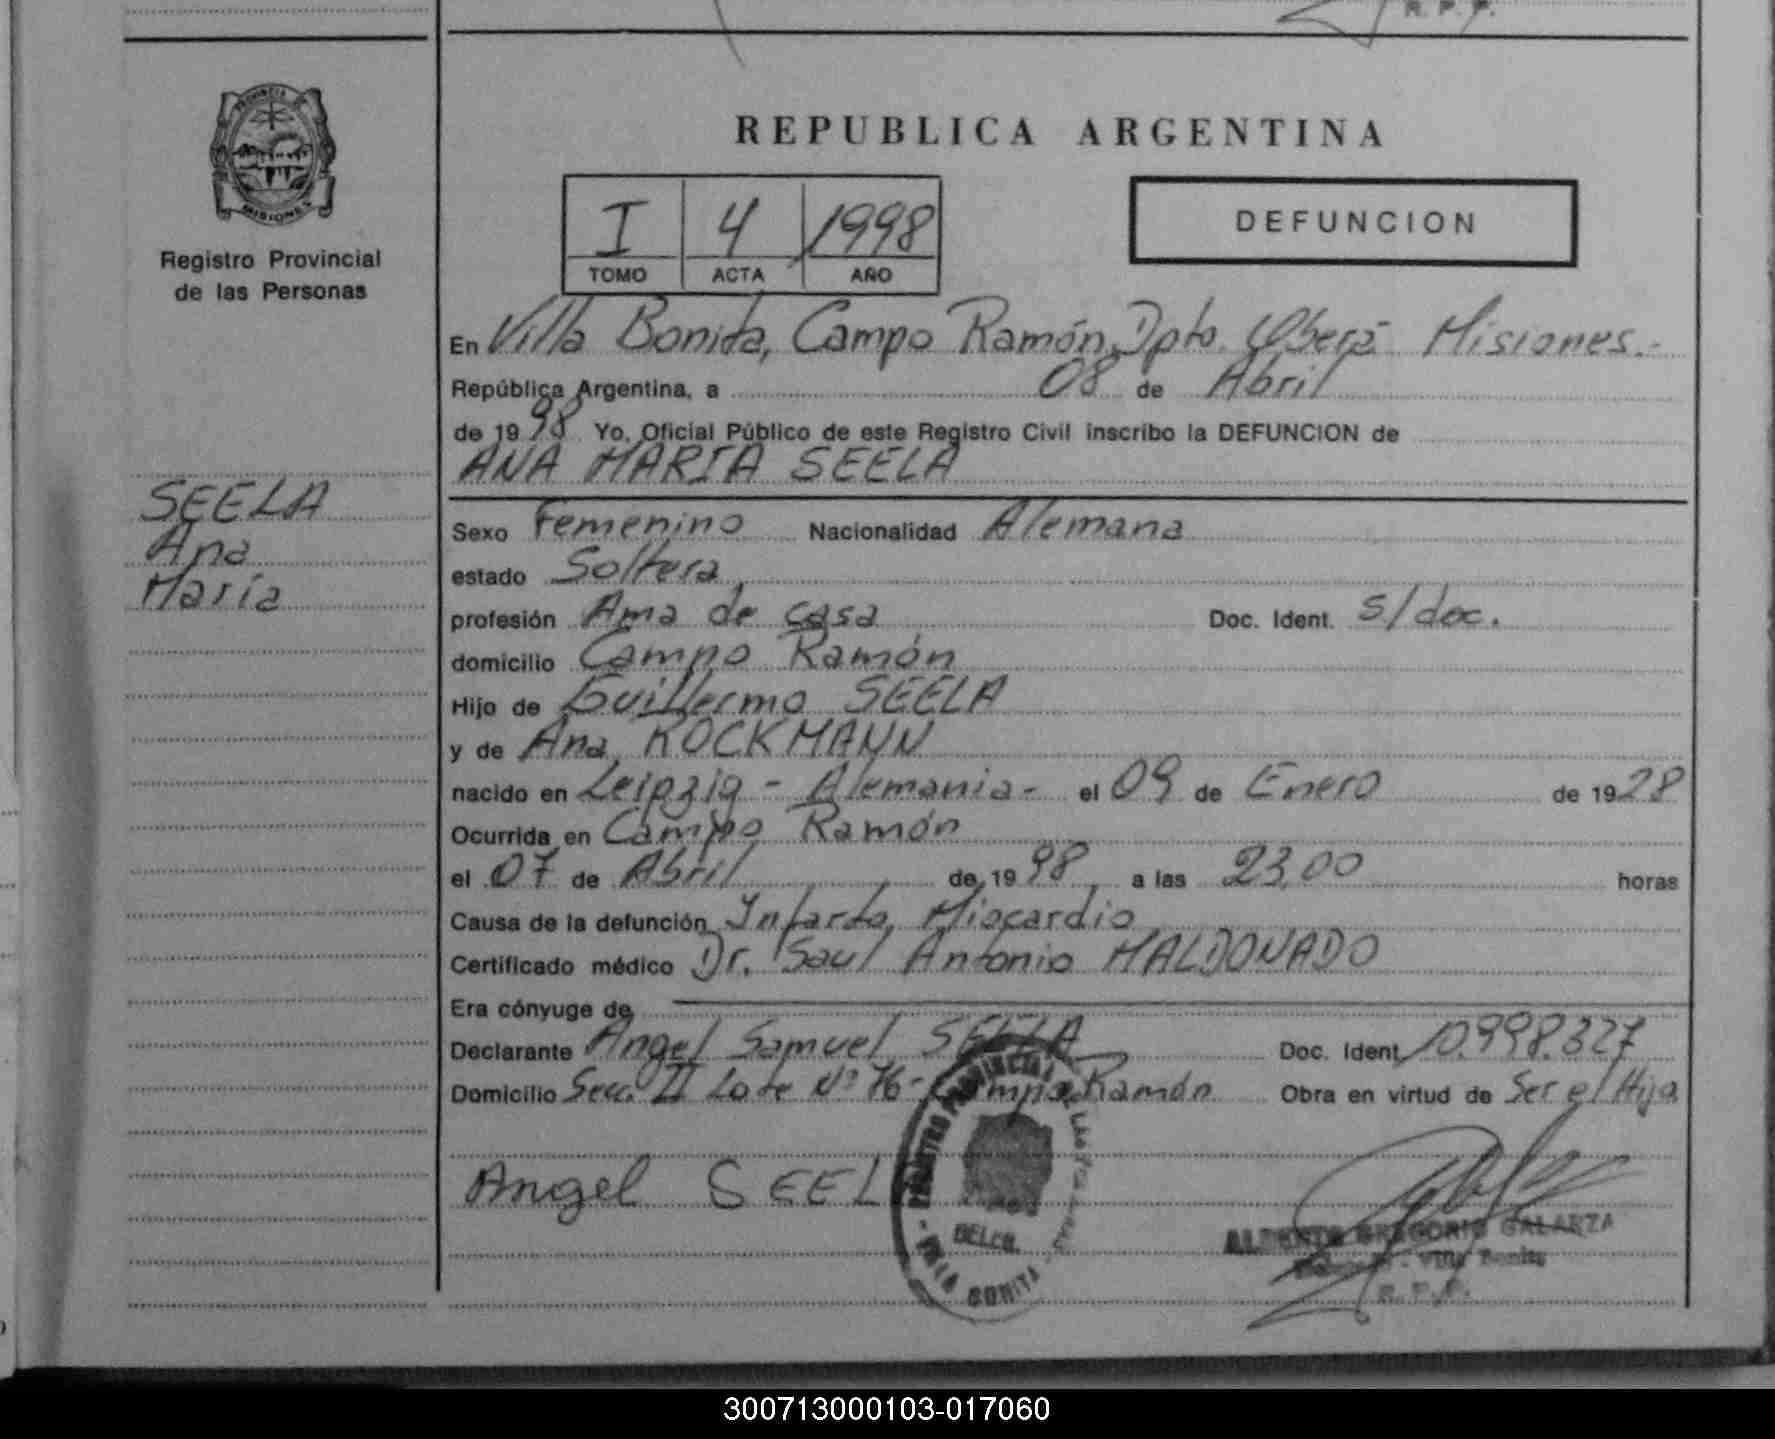 R. P. P.
PROVINCIA DE
MISIONES
Registro Provincial
de las Personas
REPUBLICA ARGENTINA
I 4 1998
TOMO ACTA AÑO
DEFUNCION
En Villa Bonita, Campo Ramón, Dpto. Oberá Misiones.-
República Argentina, a 08 de Abril
de 1998 Yo, Oficial Público de este Registro Civil inscribo la DEFUNCION de
ANA MARIA SEELA
SEELA
Ana
María
Sexo Femenino Nacionalidad Alemana
estado Soltera
profesión Ama de casa Doc. Ident. s/doc.
domicilio Campo Ramón
Hijo de Guillermo SEELA
y de Ana ROCKMANN
nacido en Leipzig - Alemania - el 09 de Enero de 1928
Ocurrida en Campo Ramón
el 07 de Abril de 1998 a las 23,00 horas
Causa de la defunción Infarto Miocardio
Certificado médico Dr. Saul Antonio MALDONADO
Era cónyuge de
Declarante Angel Samuel SEELA Doc. Ident 10.998.327
Domicilio Secc. II Lote Nº 76 - Campo Ramón Obra en virtud de Ser el Hijo
Angel SEEL
REGISTRO PROVINCIAL DE LAS
DELEG.
VILLA BONITA
ALBERTO GREGORIO GALARZA
Villa Bonita
R. P. P.
300713000103-017060